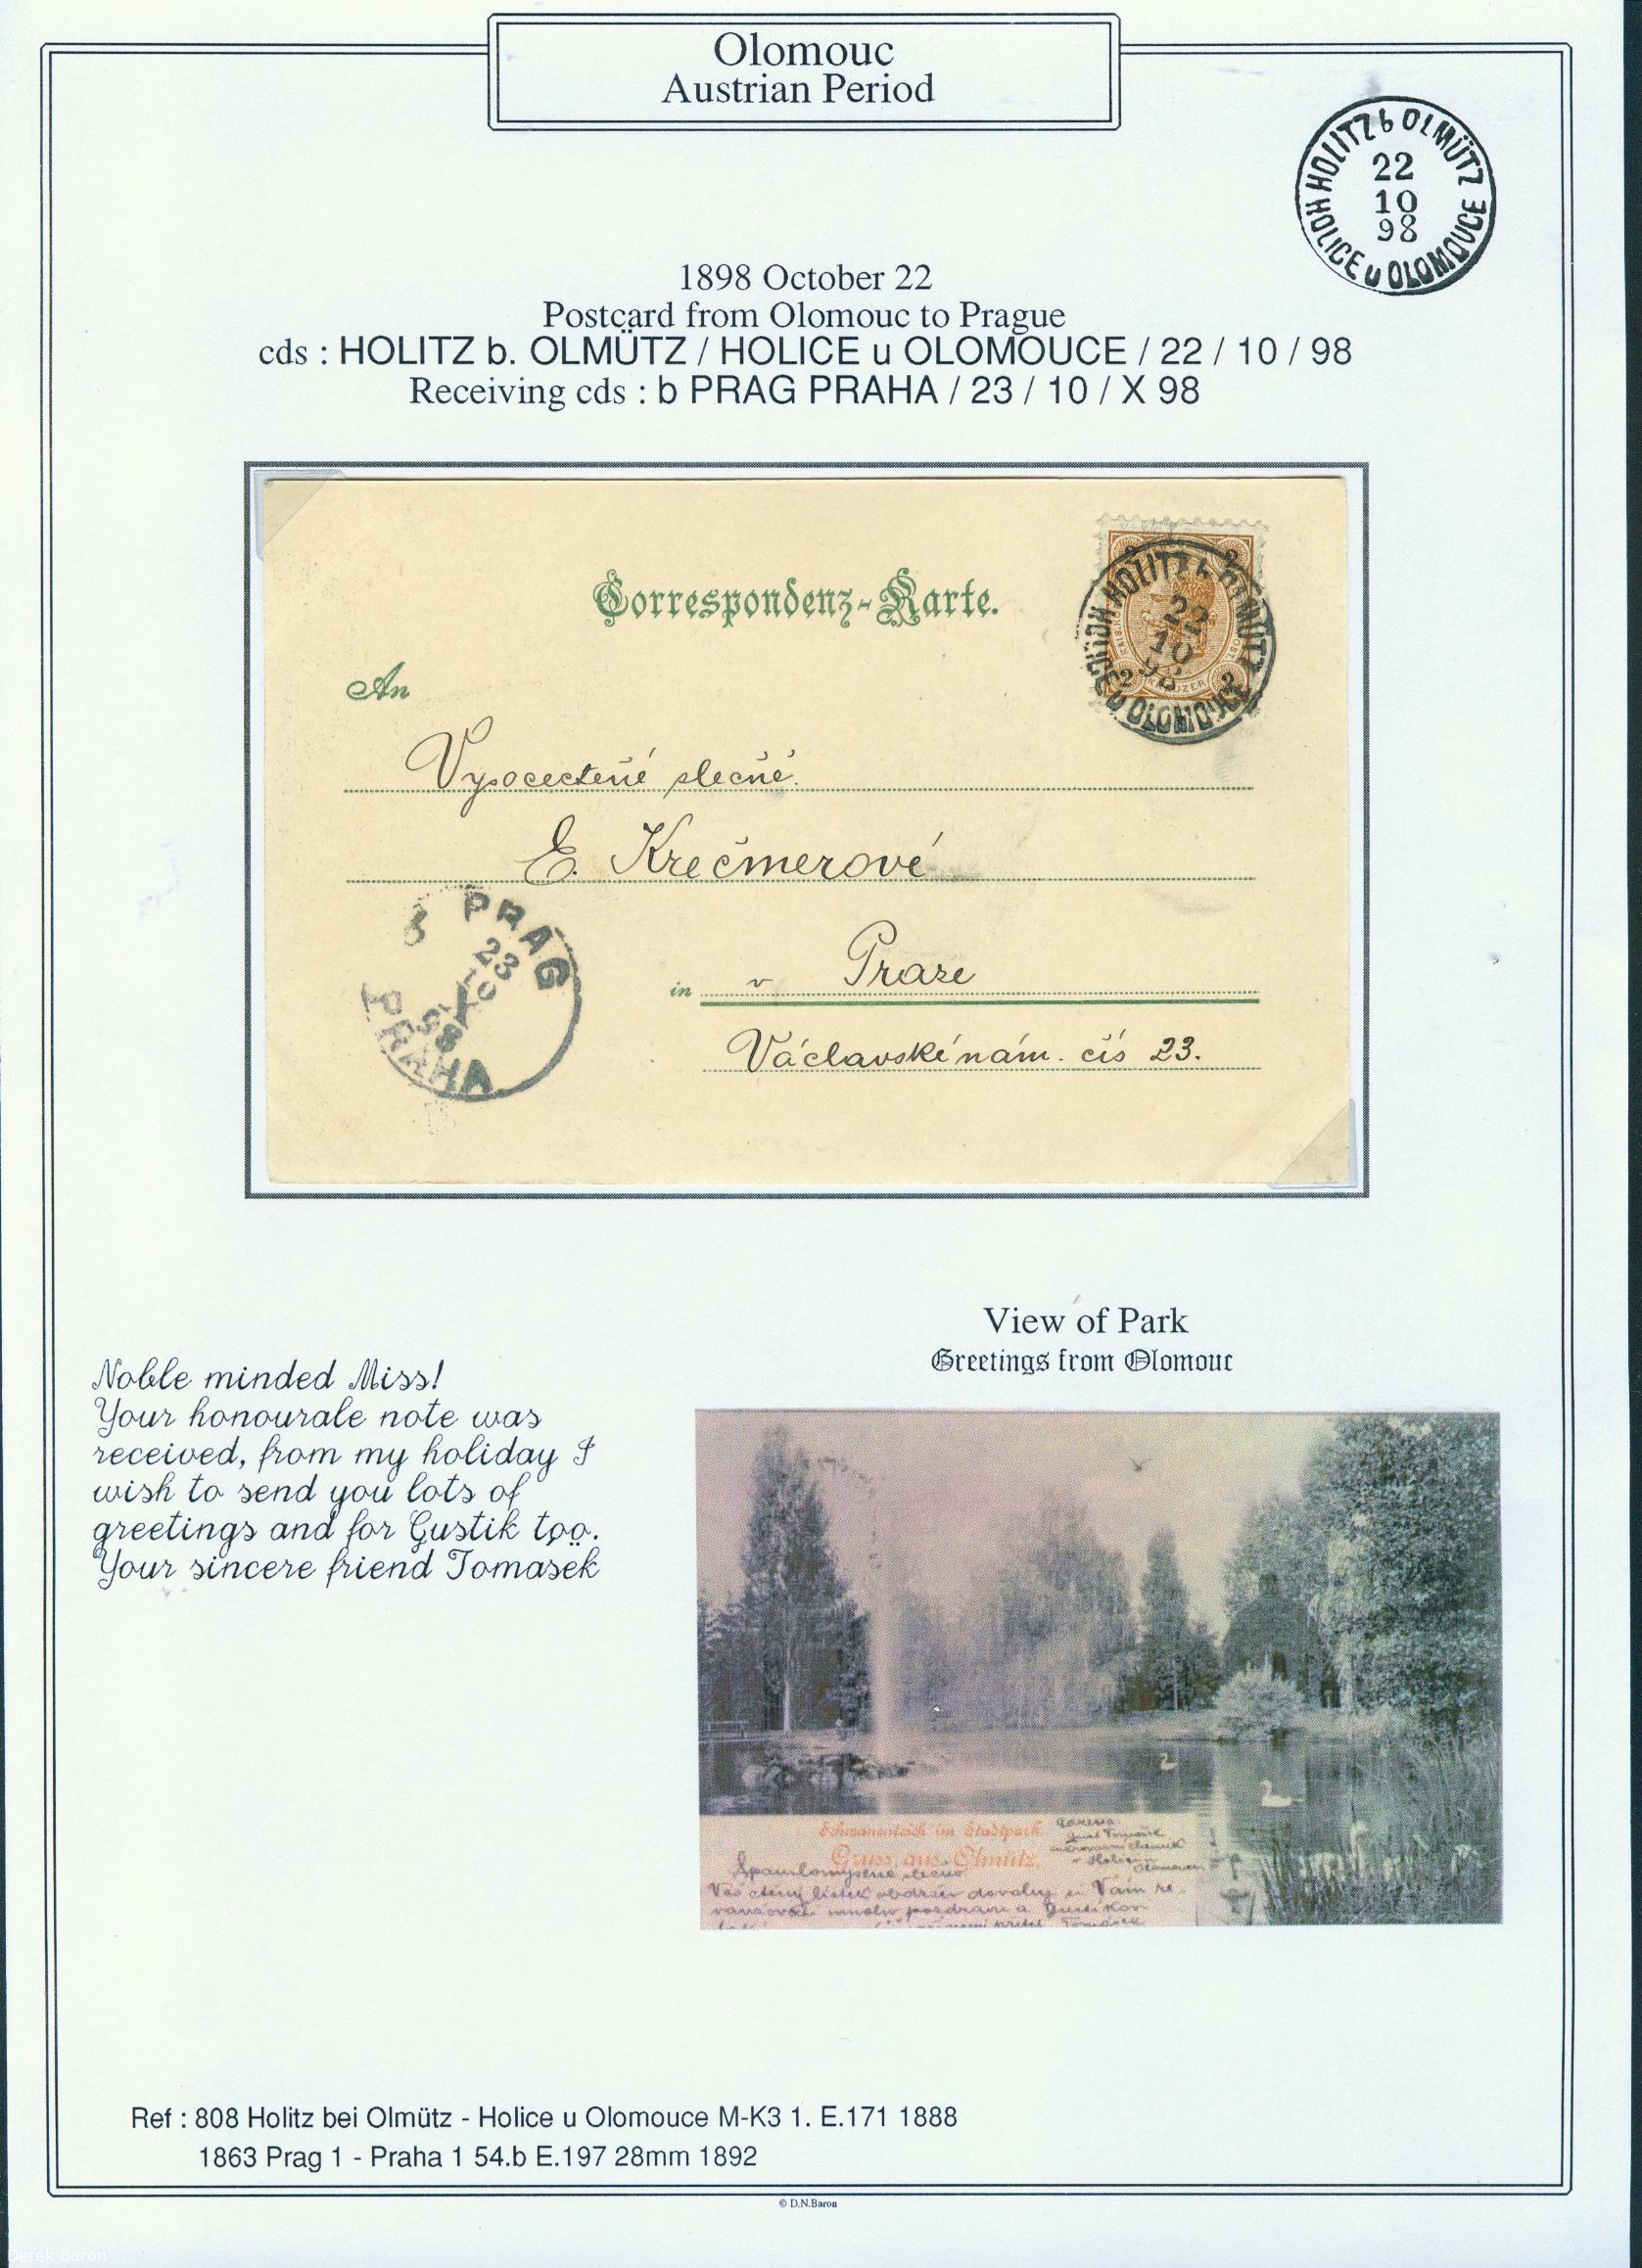 Olomouc
Austrian Period
HOLITZ b OLMÜTZ
22
10
98
HOLICE u OLOMOUCE
1898 October 22
Postcard from Olomouc to Prague
cds : HOLITZ b. OLMÜTZ / HOLICE u OLOMOUCE / 22 / 10 / 98
Receiving cds : b PRAG PRAHA / 23 / 10 / X 98
Correspondenz-Karte.
2 2
HOLITZ b OLMÜTZ
22
10
98
2 KREUZER 2
HOLICE u OLOMOUCE
An
Vysocectěné slečně.
E. Krečmerové
b PRAG
23
10
X
98
PRAHA
in v Praze
Václavské nám. čís 23.
View of Park
Greetings from Olomouc
Noble minded Miss!
Your honourale note was
received, from my holiday I
wish to send you lots of
greetings and for Gustik too.
Your sincere friend Tomasëk
Schwanenteich im Stadtpark.
Gruss aus Olmütz.
Váš ctěný lístek obdržev dovoluji si Vám re-
Ref : 808 Holitz bei Olmütz - Holice u Olomouce M-K3 1. E.171 1888
1863 Prag 1 - Praha 1 54.b E.197 28mm 1892
© D.N.Baron
Derek Baron